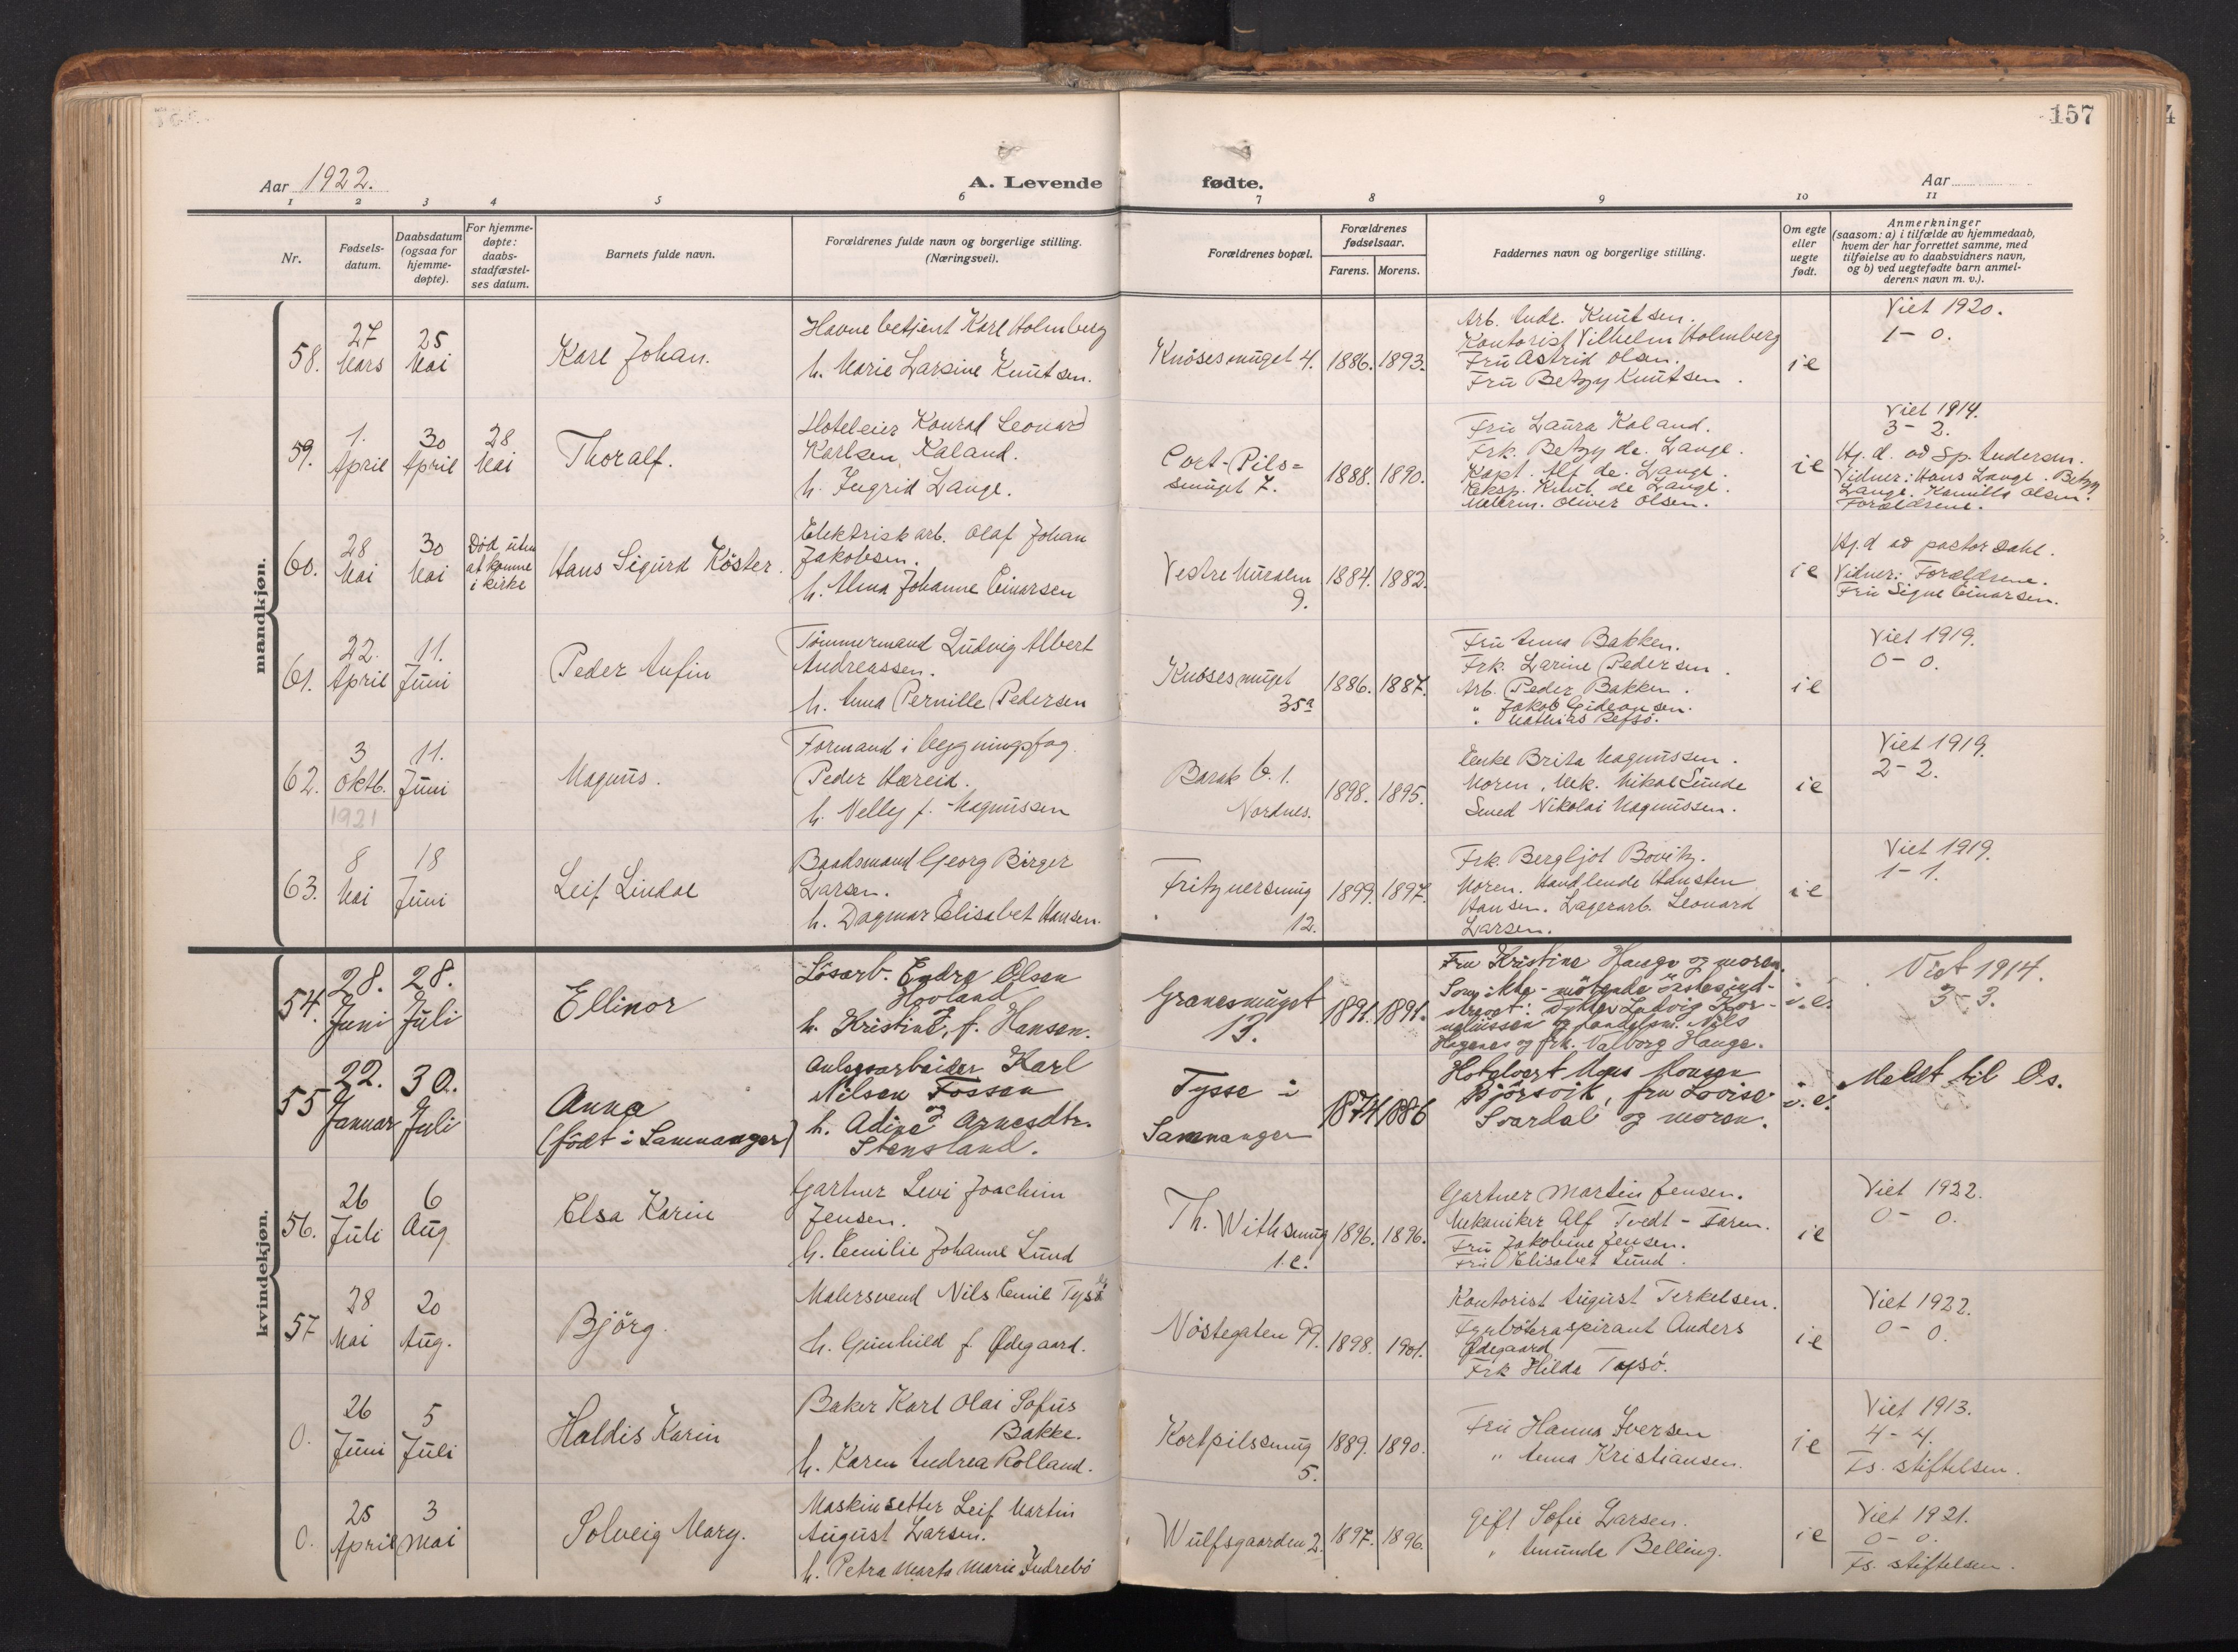 157
Aar 1922.
A. Levende fødte.
Aar
1 2 3 4 5 6 7 8 9 10 11
Nr.
Fødsels-
datum.
Daabsdatum
(ogsaa for
hjemme-
døpte).
For hjemme-
døpte:
daabs-
stadfæstel-
ses datum.
Barnets fulde navn.
Forældrenes fulde navn og borgerlige stilling.
(Næringsvei).
Forældrenes bopæl.
Forældrenes
fødselsaar.
Farens. Morens.
Faddernes navn og borgerlige stilling.
Om egte
eller
uegte
født.
Anmerkninger
(saasom: a) i tilfælde av hjemmedaab,
hvem der har forrettet samme, med
tilføielse av to daabsvidners navn,
og b) ved uegtefødte barn anmel-
derens navn m. v.).
mandkjøn.
58.
27
Mars
25
Mai
Karl Johan.
Havnebetjent Karl Holmberg
h. Marie Larsine Knutsen.
Knösesmuget 4.
1886. 1893.
Arb. Andr. Knutsen.
Kontorist Vilhelm Holmberg
Fru Astrid Olsen.
Fru Betzy Knutsen.
ie
Viet 1920.
1 - 0.
59.
1.
April
30
April
28
Mai
Thoralf.
Hoteleier Konrad Leonard
Karlsen Kaland.
h. Ingrid Lange.
Cort-Pils=
smuget 7.
1888. 1890.
Fru Laura Kaland.
Frk. Betzy de Lange.
Kapt. Alf de Lange.
Eksp. Knut de Lange.
Malerm. Oliver Olsen.
ie
Viet 1914.
3 - 2.
Hj. d. ad Sp. Andersen.
Vidner: Hans Lange. Betzy
Lange. Kamilla Olsen.
Forældrene.
60.
28
Mai
30
Mai
Död uten
at komme
i kirke
Hans Sigurd Köster.
Elektrisk arb. Olaf Johan
Jakobsen.
h. Alma Johanne Einarsen
Vestre Muralm.
9.
1884. 1882.
ie
Hj. d ad pastor Dahl.
Vidner: Forældrene.
Fru Signe Einarsen.
61.
22.
April
11.
Juni
Peder Anfin
Tömmermand Ludvig Albert
Andreassen.
h. Anna Pernille Pedersen
Knösesmuget
35a
1886. 1887.
Fru Anna Bakken.
Frk. Larine Pedersen.
Arb. Peder Bakken.
" Jakob Gideonsen.
" Mathias Refsö.
ie
Viet 1919.
0 - 0.
62.
3
Oktb.
1921
11.
Juni
Magnus.
Formand i bygningsfag.
Peder Hæreid.
h. Nelly f. Magnussen
Barak b. 1.
Nordnes.
1898. 1895.
Enke Brita Magnussen.
Moren, Mek. Mikal Sunde
Smed Nikolai Magnussen.
ie
Viet 1919.
2 - 2.
63.
8
Mai
18
Juni
Leif Lindal
Baadsmand Georg Birger
Larsen.
h. Dagmar Elisabet Hansen.
Fritznersmug
12.
1899. 1897.
Frk. Bergljot Bovitz.
Moren. Handlende Hansten
Hansen. Lagerarb. Leonard
Larsen.
ie
Viet 1919.
1 - 1.
kvindekjøn.
54.
28.
Juni
28.
Juli
Ellinor
Lösarb. Endre Olsen
Hovland
h. Kristine, f. Hansen.
Granesmuget
13.
1891. 1891.
Fru Kristine Hauge og moren.
Som ikke-mötende önskes ind-
skrevet: Dykker Ludvig Kor-
neliussen og handelsm. Nils
Hagenes og frk. Valborg Hauge.
i.e.
Viet 1914.
3 - 3.
55
22.
Januar
30.
Juli
Anna
(födt i Samnanger)
Anlegsarbeider Karl
Nilsen Fossen
og
h. Adine Arnesdtr.
Stensland.
Tysse i
Samnanger
1874 1886
Hotelvert Mons Monsen
Björsvik, fru Lovise
Svardal og moren.
i.e.
Meldt til Os.
56.
26
Juli
6
Aug
Elsa Karin
Gartner Levi Joachim
Jensen.
h. Emilie Johanne Lund
Th. Withsmug
1 c.
1896. 1896.
Gartner Martin Jensen.
Mekaniker Alf Tvedt - Faren.
Fru Jakobine Jensen.
Fru Elisabet Lund.
ie
Viet 1922.
0 - 0.
57
28
Mai
20
Aug.
Björg.
Malersvend Nils Emil Tysö
h. Gunhild f. Ødegaard.
Nöstegaten 99.
1898. 1901.
Kontorist August Terkelsen.
Fyrböteraspirant Anders
Ødegaard
Frk Hilda Tysö.
ie
Viet 1922.
0 - 0.
0.
26
Juni
5
Juli
Haldis Karin
Baker Karl Olai Sofus
Bakke.
h. Karen Andrea Rolland.
Kortpilssmug
5.
1889. 1890.
Fru Hanna Iversen
" Anna Kristiansen.
ie
Viet 1913.
4 - 4.
Fs. stiftelsen.
0.
25
April
3
Mai
Solveig Mary.
Maskinsetter Leif Martin
August Larsen.
h. Petra Marta Marie Indrebö
Wulfsgaarden 2.
1897. 1896.
Gift Sofie Larsen.
" Amunda Belling.
ie
Viet 1921.
0 - 0.
Fs. stiftelsen.